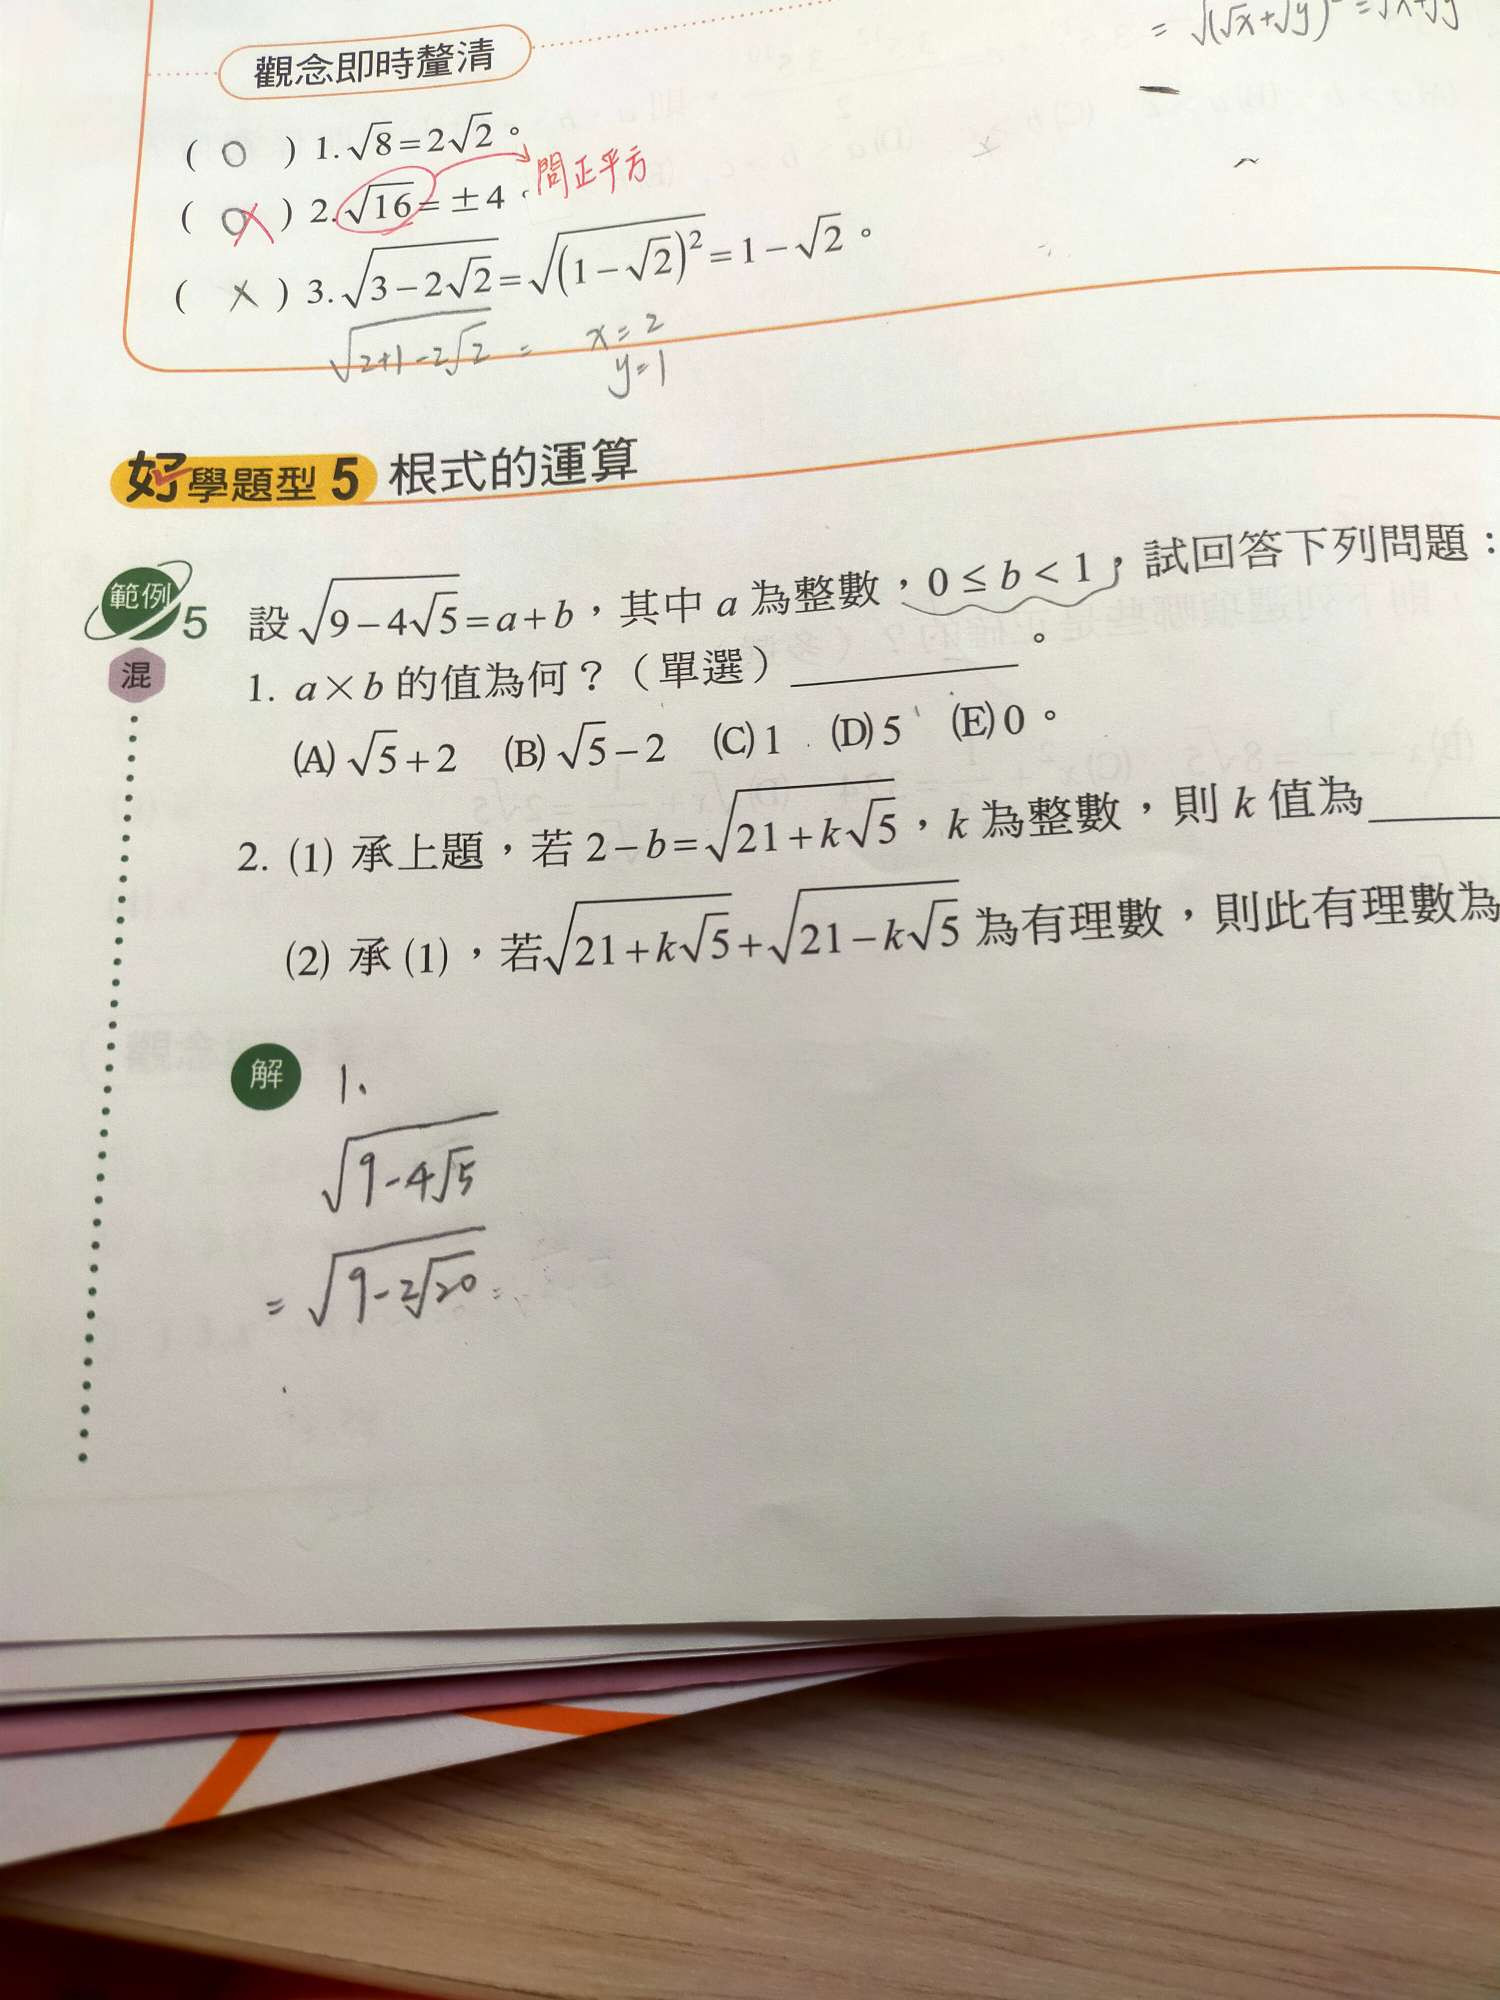 = √(√x+√y)² = √x+√y
觀念即時釐清
( O ) 1. √8 = 2√2。
( X ) 2. √16 = ±4 問正平方
( × ) 3. √(3-2√2) = √((1-√2)²) = 1-√2。
√(2+1-2√2) = x=2
y=1
好學題型 5 根式的運算
範例 5 設 √(9-4√5) = a+b,其中 a 為整數,0 ≤ b < 1,試回答下列問題:
混 1. a×b 的值為何?(單選)________。
(A) √5+2 (B) √5-2 (C) 1 (D) 5 (E) 0。
2. (1) 承上題,若 2-b = √(21+k√5),k 為整數,則 k 值為
(2) 承(1),若 √(21+k√5) + √(21-k√5) 為有理數,則此有理數為
解 1、
√(9-4√5)
= √(9-2√20) =